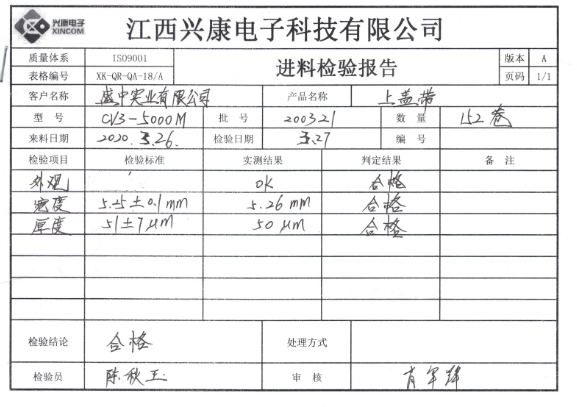 兴康电子
XINCOM
江西兴康电子科技有限公司
质量体系 ISO9001 进料检验报告 版本 A
表格编号 XK-QR-QA-18/A 页码 1/1
客户名称 盛中实业有限公司 产品名称 上盖带
型号 CV3-5000M 批号 200321 数量 152卷
来料日期 2020.3.26. 检验日期 3.27 编号
检验项目 检验标准 实测结果 判定结果 备注
外观 OK 合格
宽度 5.25±0.1mm 5.26mm 合格
厚度 51±7μm 50μm 合格
检验结论 合格 处理方式
检验员 陈秋玉 审核 肖军